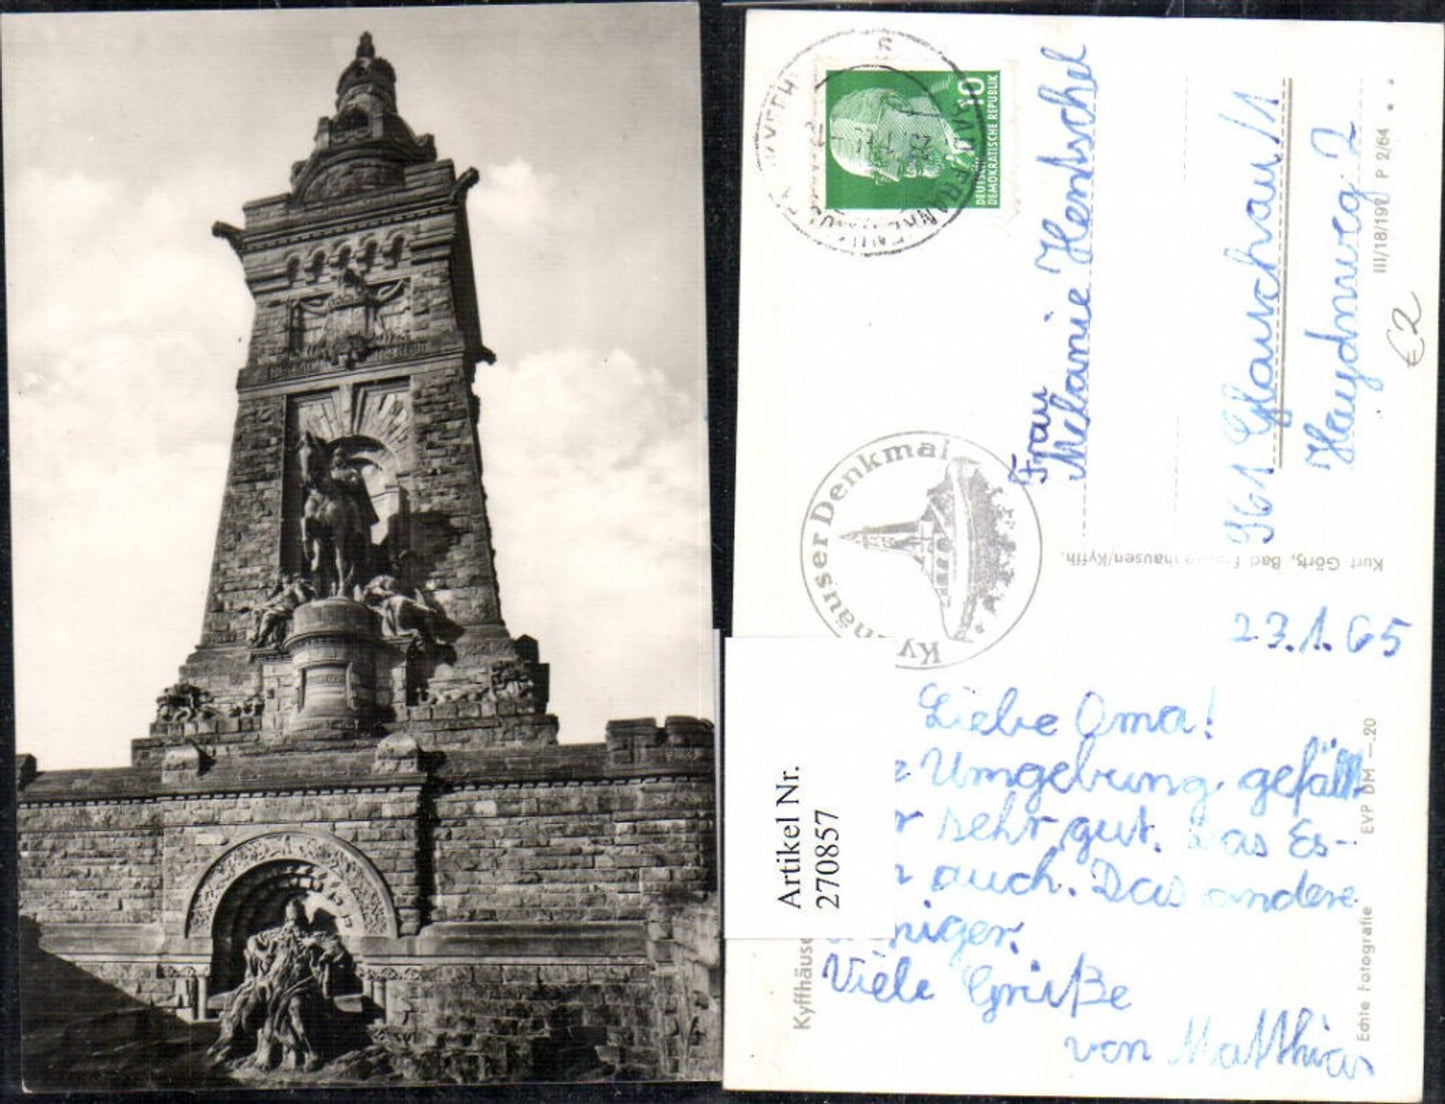 10
DEUTSCHE
DEMOKRATISCHE REPUBLIK
BAD FRANKENHAUSEN
Kyffhäuser Denkmal
Frau
Melanie Hentschel
961 Glauchau/1
Haydnweg 2
III/18/197 P 2/64
€2
Kurt Görtz, Bad Frankenhausen/Kyffh.
23.1.65
Liebe Oma!
Umgebung gefällt
sehr gut. Das Es-
auch. Das andere
weniger.
Viele Grüße
von Matthias
Artikel Nr.
270857
Kyffhäuse
Echte Fotografie
EVP DM -.20